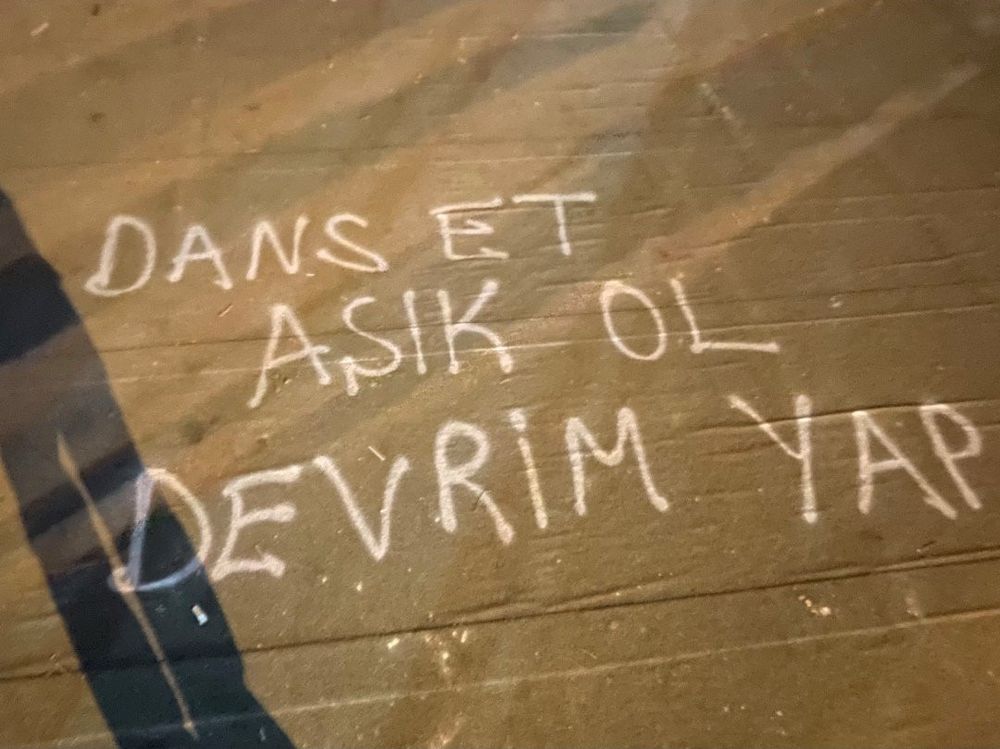 DANS ET
AŞIK OL
DEVRİM YAP